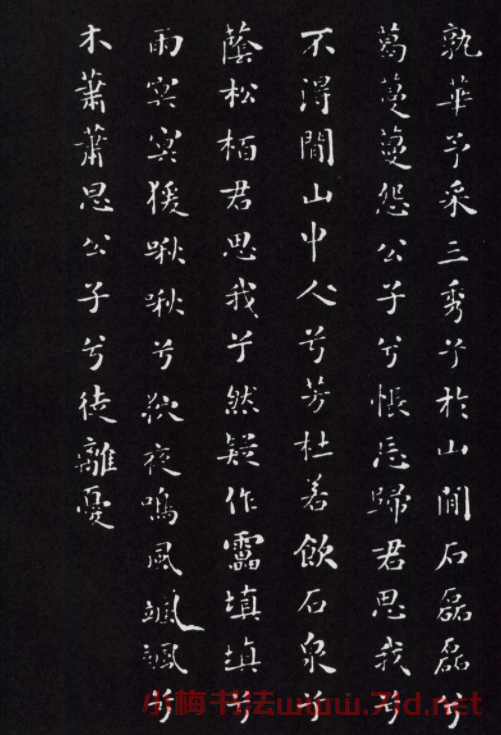 孰華予采三秀兮於山間石磊磊兮
葛蔓蔓怨公子兮悵忘歸君思我兮
不得閒山中人兮芳杜若飲石泉兮
蔭松栢君思我兮然疑作靁填填兮
雨冥冥猨啾啾兮狖夜鳴風颯颯兮
木蕭蕭思公子兮徒離憂
小梅书法www.7ld.net